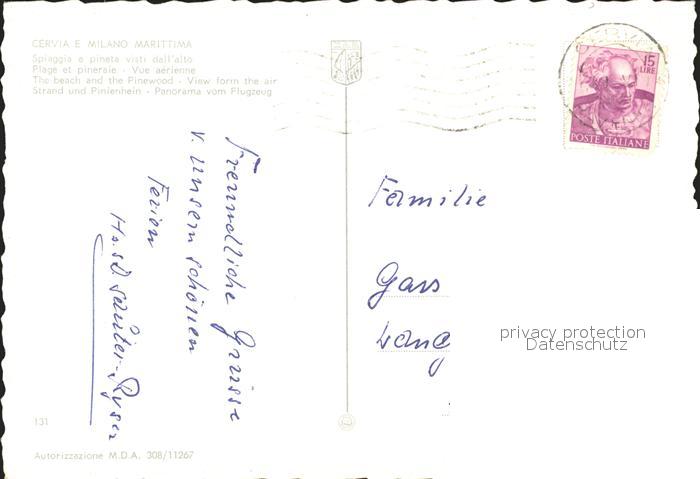 CERVIA E MILANO MARITTIMA
Spiaggia e pineta visti dall'alto
Plage et pineraie - Vue aérienne
The beach and the Pinewood - View form the air
Strand und Pinienhein - Panorama vom Flugzeug
15
LIRE
POSTE ITALIANE
Freundliche Grüsse
v. unsern schönen
Ferien
Familie
Gass
Lang
privacy protection
Datenschutz
131
Autorizzazione M.D.A. 308/11267